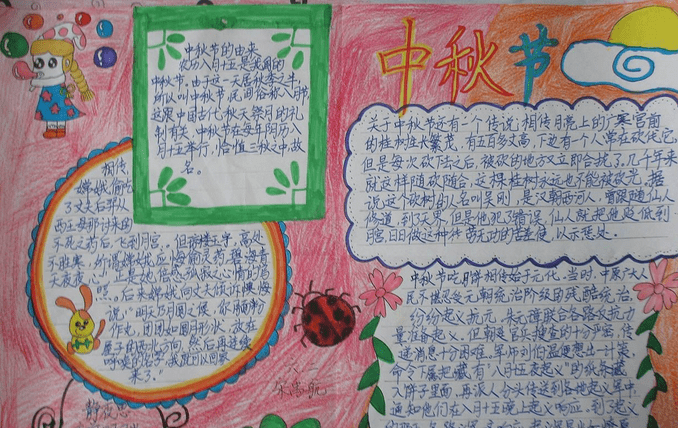 中秋节
中秋节的由来
农历八月十五是我国的
中秋节。由于这一天居秋季之半,
所以叫中秋节,民间俗称八月节
这跟中国古代,秋天祭月的礼
制有关,中秋节在每年阴历八
月十五举行,恰值三秋之中,故
名。
相传,
嫦娥偷吃
了丈夫后羿从
西王母那讨来的
不死之药后,飞到月宫。但琼楼玉宇,高处
不胜寒,所谓嫦娥应悔偷灵药,碧海青
天夜夜心,正是她倍感孤寂之心情的写
照。后来嫦娥向丈夫倾诉懊悔
说:"明天乃月圆之候,你用面粉
作丸,团团如圆月形状,放在
屋子的西北方向,然后再连续
呼唤的名字,我就可以回家
来了。"
关于中秋节还有一个传说:相传月亮上的广寒宫前
的桂树生长繁茂,有五百多丈高,下边有一个人常在砍伐它,
但是每次砍下去之后,被砍的地方又立即合拢了,几千年来
就这样随砍随合,这棵桂树永远也不能被砍光。据
说这个砍树的人名叫吴刚,是汉朝西河人,曾跟随仙人
修道,到了天界,但是他犯了错误,仙人就把他贬低到
月宫,日日做这种徒劳无功的苦差使,以示惩处。
中秋节吃月饼相传始于元代。当时,中原广大人
民不堪忍受元朝统治阶级的残酷统治,
纷纷起义抗元。朱元璋联合各路反抗力
量准备起义。但朝廷官兵搜查的十分严密,传
递消息十分困难。军师刘伯温便想出一计策,
命令下属把藏有"八月十五夜起义"的纸条藏
入饼子里面,再派人分头传送到各地起义军中,
通知他们在八月十五晚上起义响应。到了起义